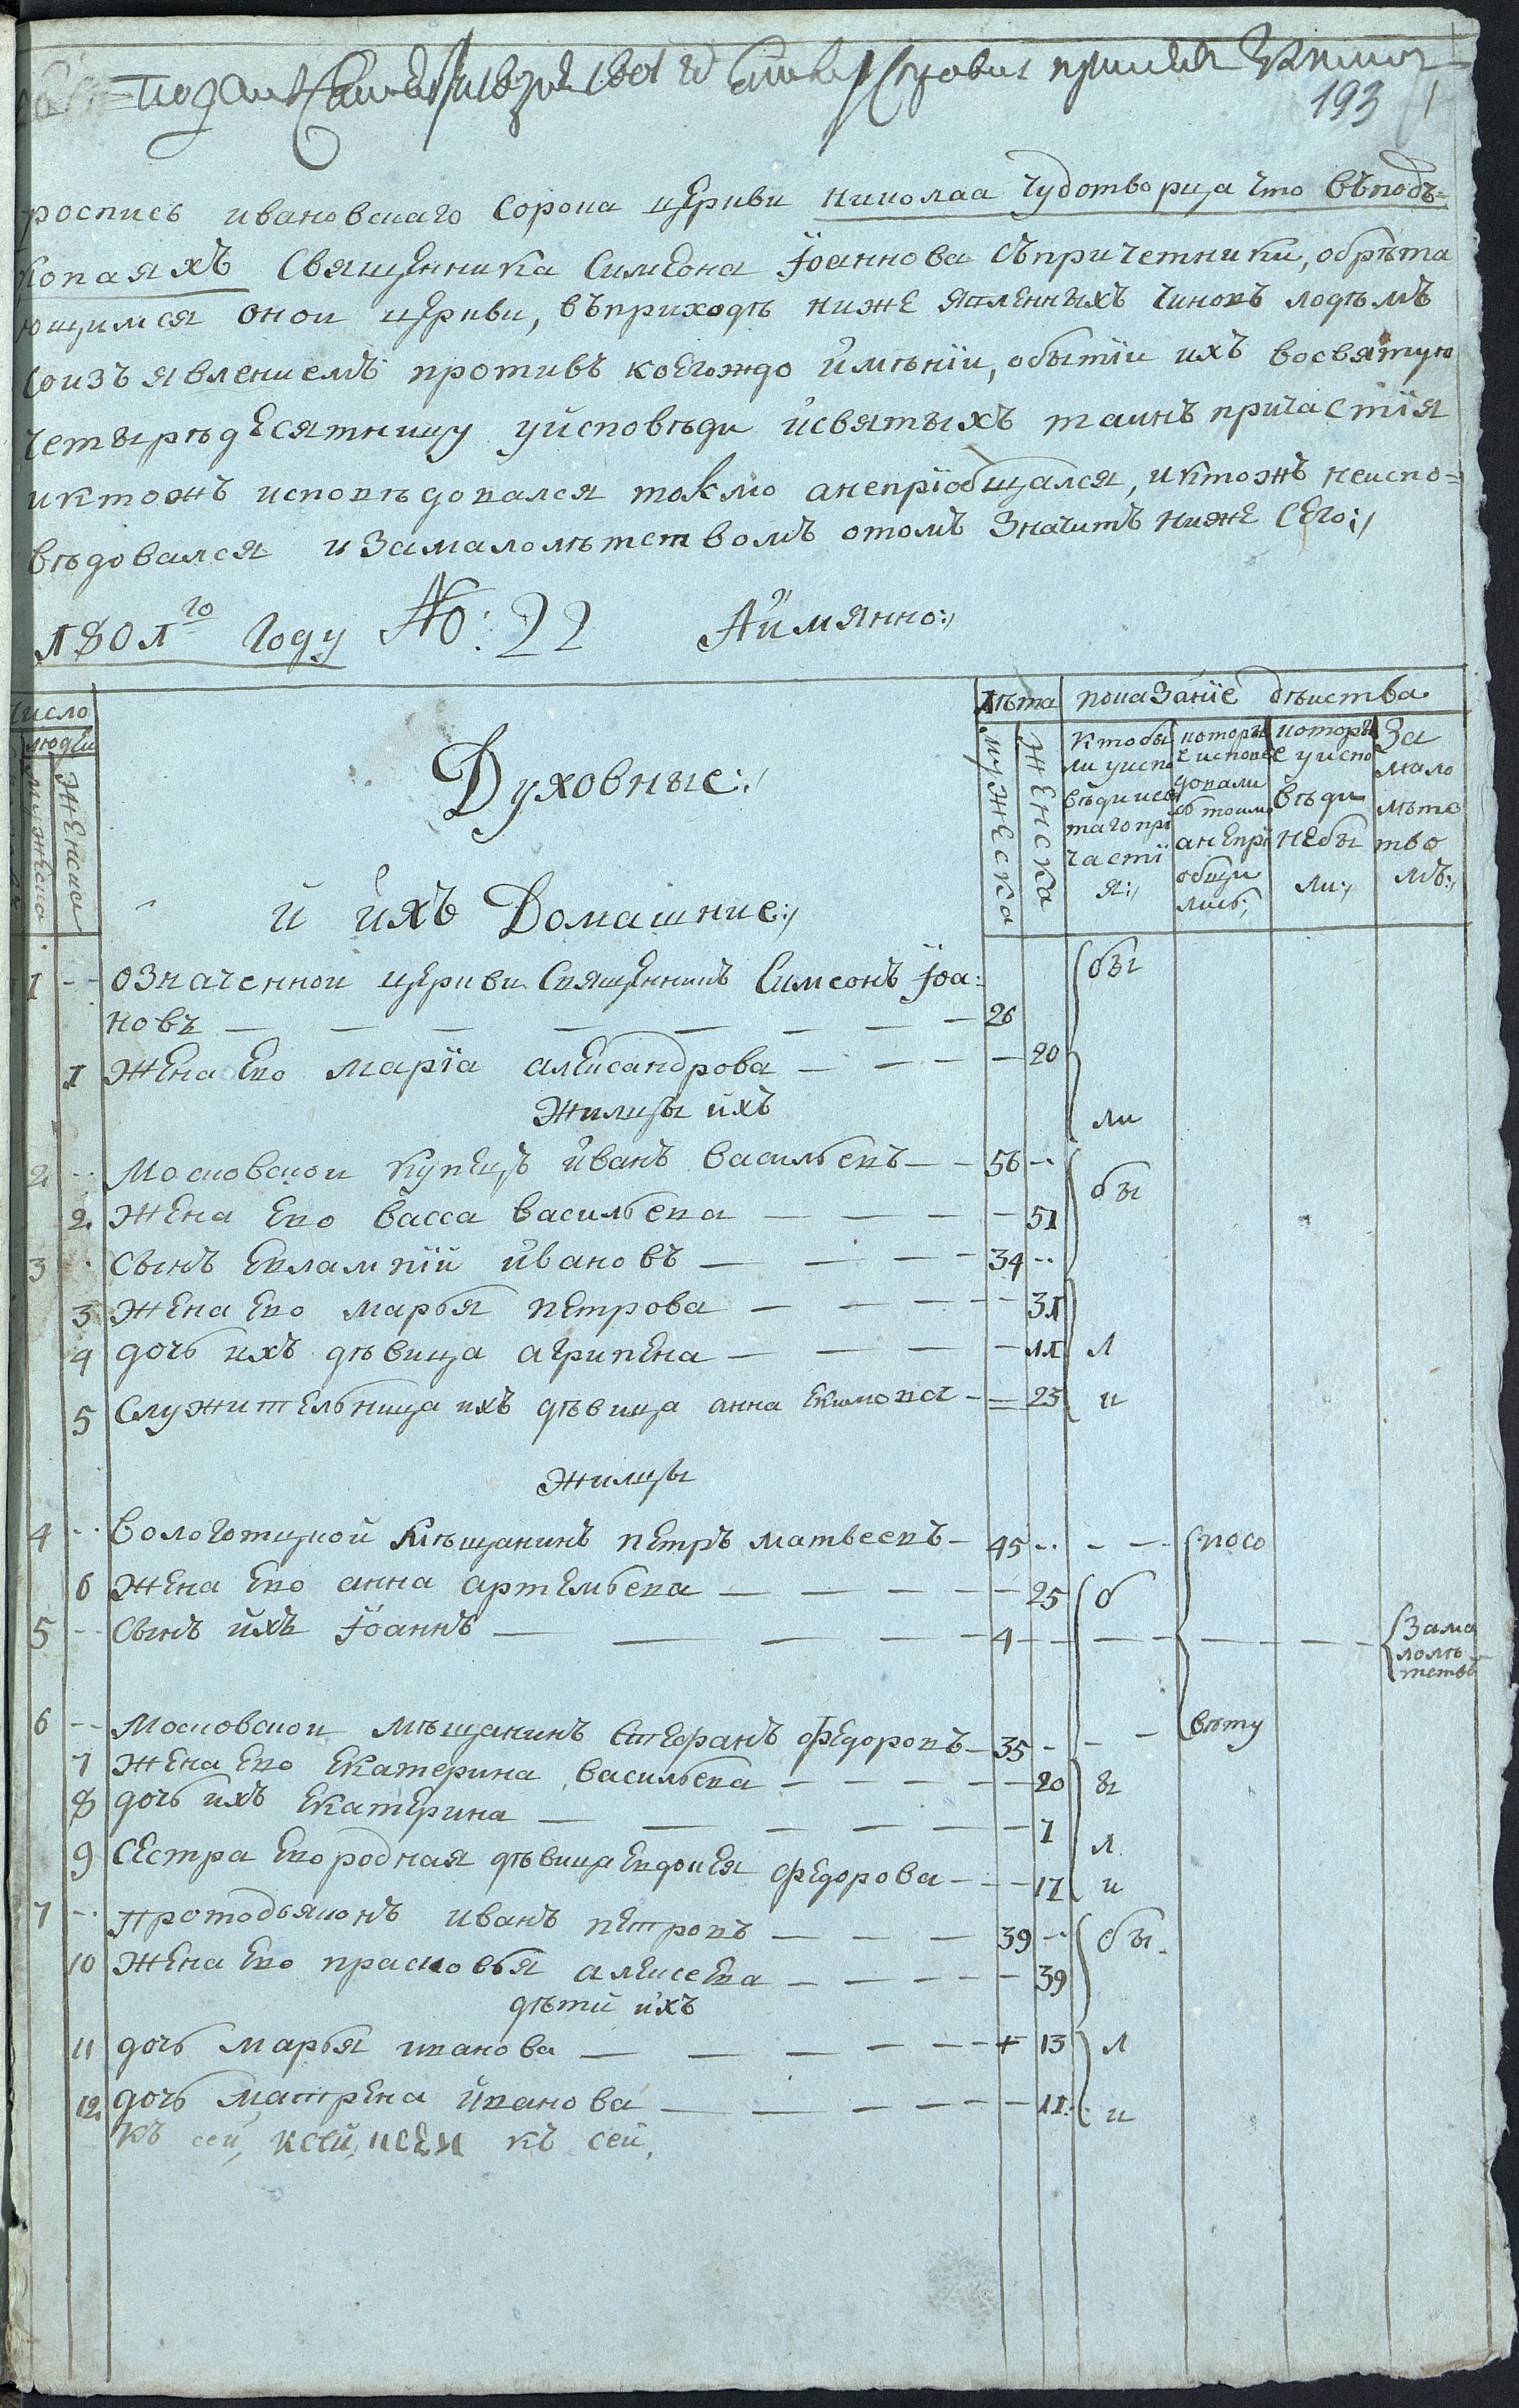 193
роспись ивановскаго Сорока церкви николаа Чудотворца что въподъ=
копаяхъ Священника Симеона Іоаннова съпричетники, обрѣта
ющимся оной церкви, въприходѣ ниже явленныхъ чиновъ людѣмъ
Соизъявлениемъ противъ коегождо имѣніи, обытіи ихъ восвятую
четырѣдесятницу уисповѣди исвятыхъ таинъ причастія
иктожъ исповѣдовался токмо анепріобщался, иктожъ неиспо=
вѣдовался изамалолѣтством отомъ Значитъ ниже Сего:
1801го Году №: 22 Аимянно:
Число
людей
мужеска
женска
Духовные:
и ихъ Домашние:
лѣта
мужеска
женска
показаніе дѣиства
Ктобы
ли уиспо
вѣди исвя
таго при
частї
я:
которы
е испове
довали
сь токмо
анепрі
общи
лись,
которы
е уиспо
вѣди
небы
ли:
За
мало
лѣтс
тво
мъ:
1 -- означенной церкви Священникъ Симеонъ Іоа=
новъ — 26 бы
1 жена ево марїа александрова — 20
жильцы ихъ ли
2. -- Московской купецъ иванъ васильевъ — 56 --
2. жена ево васса васильева — 51 бы
3 сынъ евлампїй ивановъ — 34 --
3 жена ево марья петрова — 31
4 дочь ихъ дѣвица агрипена — 11 л
5 Служительница ихъ дѣвица анна екимова — 23 и
жильцы
4 -- вологотцкой мѣщанинъ петръ матвеевъ — 45 -- посо
6 жена ево анна артемьева — 25 б
5 -- сынъ ихъ Іоаннъ — 4 — Зама
лолѣ
тством
6 -- Московской мѣщанинъ стефанъ федоровъ — 35 - вѣту
7 жена ево екатерина васильева — 20 ы
8 дочь ихъ екатерина — 7 л
9 сестра ево родная дѣвица евдокея федорова — 17 и
7 -- протодьяконъ иванъ петровъ — 39 -- бы
10 жена ево прасковья алексеева — 39
дѣти ихъ
11 дочь марья иванова — 13 л
12. дочь матрена иванова — 11 и
къ сей, ксей, ксеи къ сей,